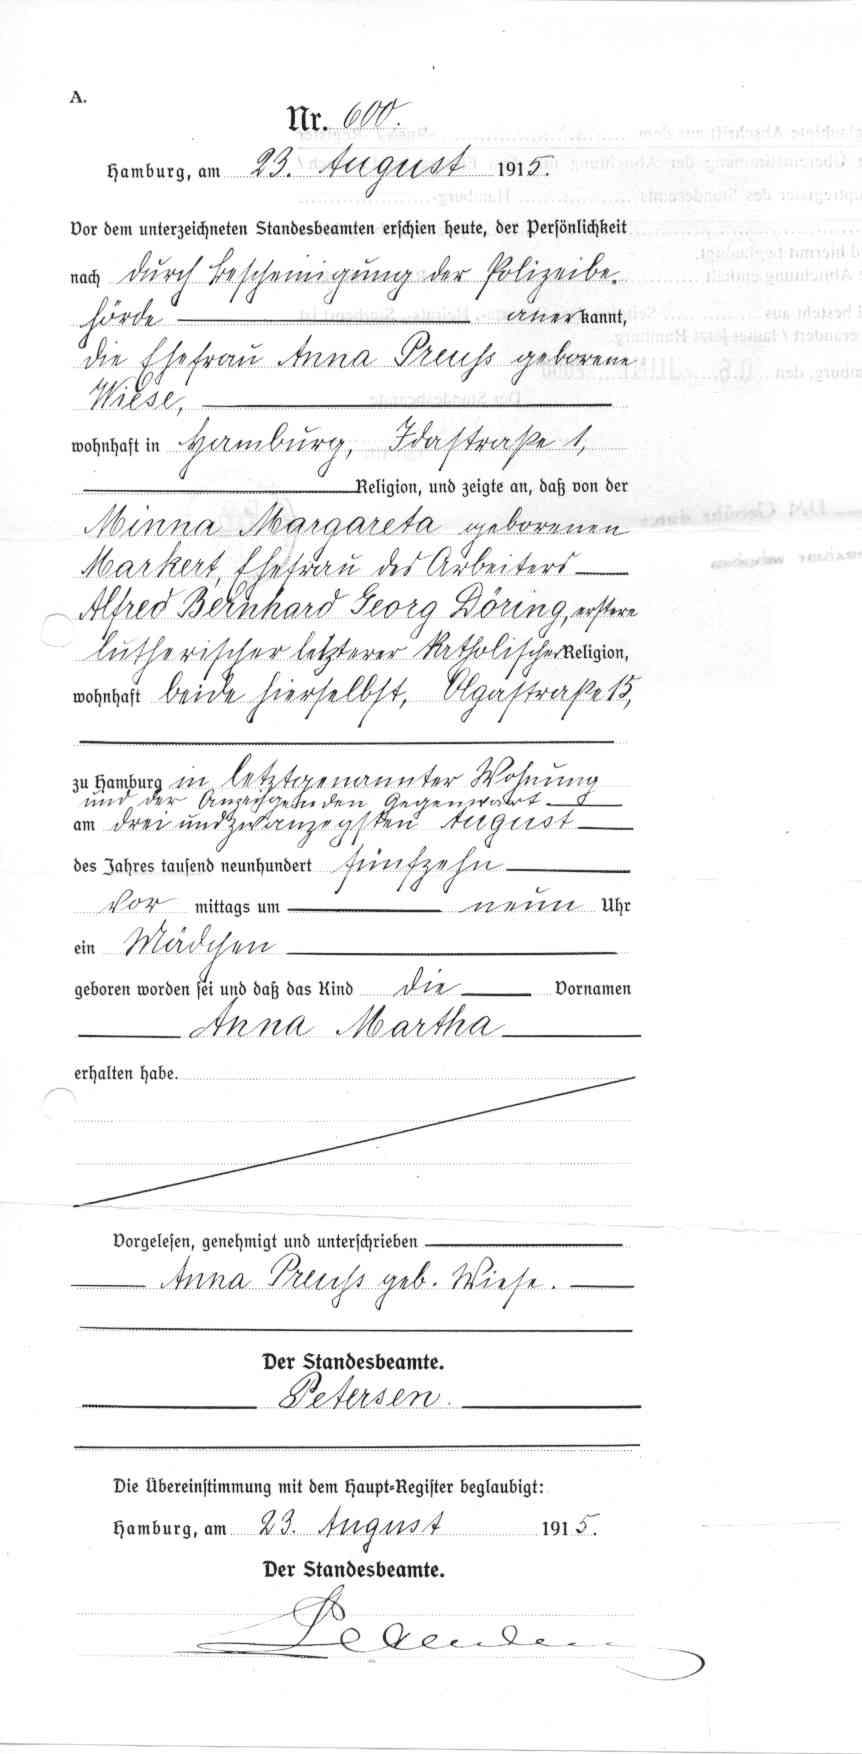 A.
Nr. 600.
Hamburg, am 23. August 1915.
Vor dem unterzeichneten Standesbeamten erschien heute, der Persönlichkeit
nach durch Bescheinigung der Polizeibe-
hörde anerkannt,
die Ehefrau Anna Preuß geborene
Wiese,
wohnhaft in Hamburg, Idastraße 1,
Religion, und zeigte an, daß von der
Minna Margareta geborenen
Markert, Ehefrau des Arbeiters
Alfred Bernhard Georg Döring, erstere
lutherischer letzterer katholischer Religion,
wohnhaft beide hierselbst, Olgastraße 15,
zu Hamburg in letztgenannter Wohnung
und in der Anzeigenden Gegenwart
am dreiundzwanzigsten August
des Jahres tausend neunhundert fünfzehn
Vor mittags um neun Uhr
ein Mädchen
geboren worden sei und daß das Kind die Vornamen
Anna Martha
erhalten habe.
Vorgelesen, genehmigt und unterschrieben
Anna Preuß geb. Wiese.
Der Standesbeamte.
Petersen.
Die Übereinstimmung mit dem Haupt-Register beglaubigt:
Hamburg, am 23. August 1915.
Der Standesbeamte.